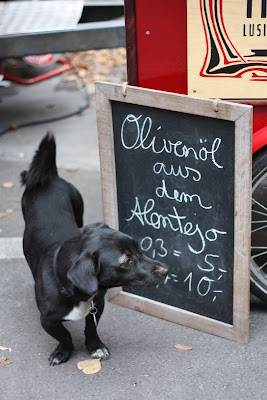 LUSI
Olivenöl
aus
dem
Alentejo
0,3 = 5,-
= 10,-